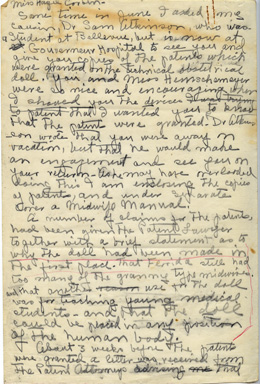 Miss Hazel Corbin.
Some time in June I asked some
cousin, Dr Sam Atkinson, who was
a Student at Bellevue, but is now at
Gouverneur Hospital to see you and
give you copies of the patents which
were granted on the technical obstetrical
doll. You and Miss
were so nice and encouraging when
I showed you the device I was trying
to patent that I wanted you to know
that the patent were granted. Dr Atkin-
son wrote that you were away on
vacation, but that he would make
an engagement and see you on
your return- He may have overlooked
doing this. I am enclosing the copies
of patents, and under separate
cover a Midwife Manual.
A number of claims for the patents,
had been given the Patent Lawyer
together with a brief statement as to
why the doll had been made in
the first place, that Florida still had
too many of the granny type midwives.
and that another use for the doll
was for teaching young medical
students- and that the doll
could be placed in any position
of the human body.
About 3 weeks before the patents
were granted a letter was received from
The Patent Attorneys advising me that